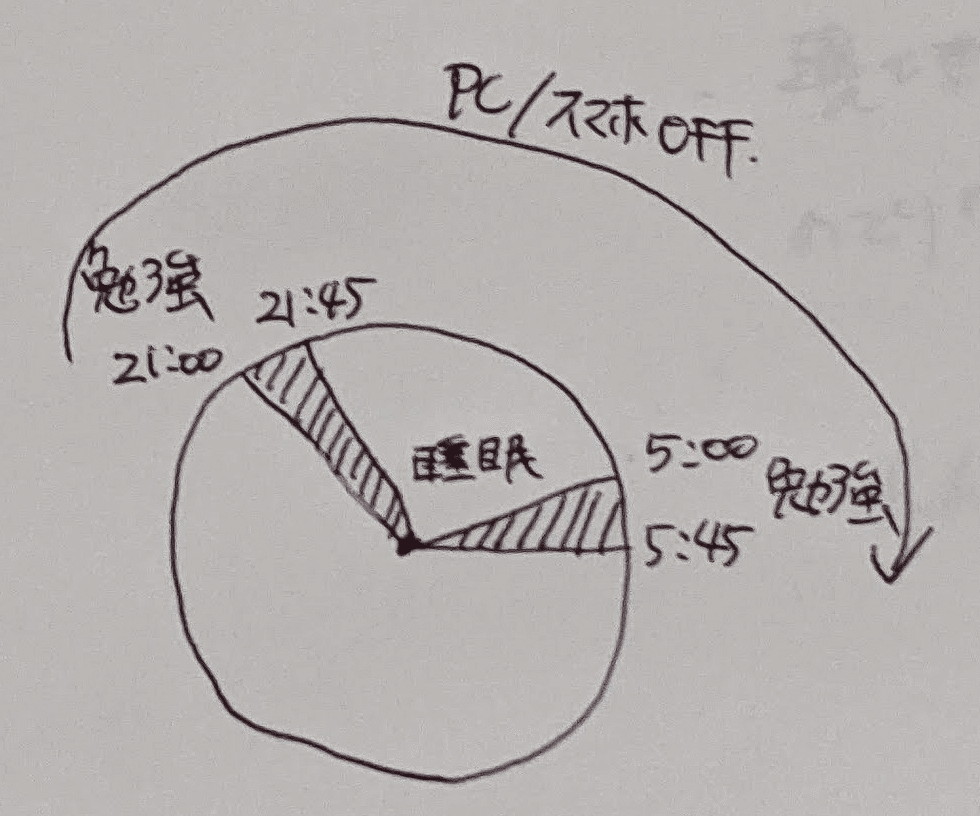 PC/スマホOFF.
勉強
21:45
21:00
睡眠
5:00
勉強
5:45